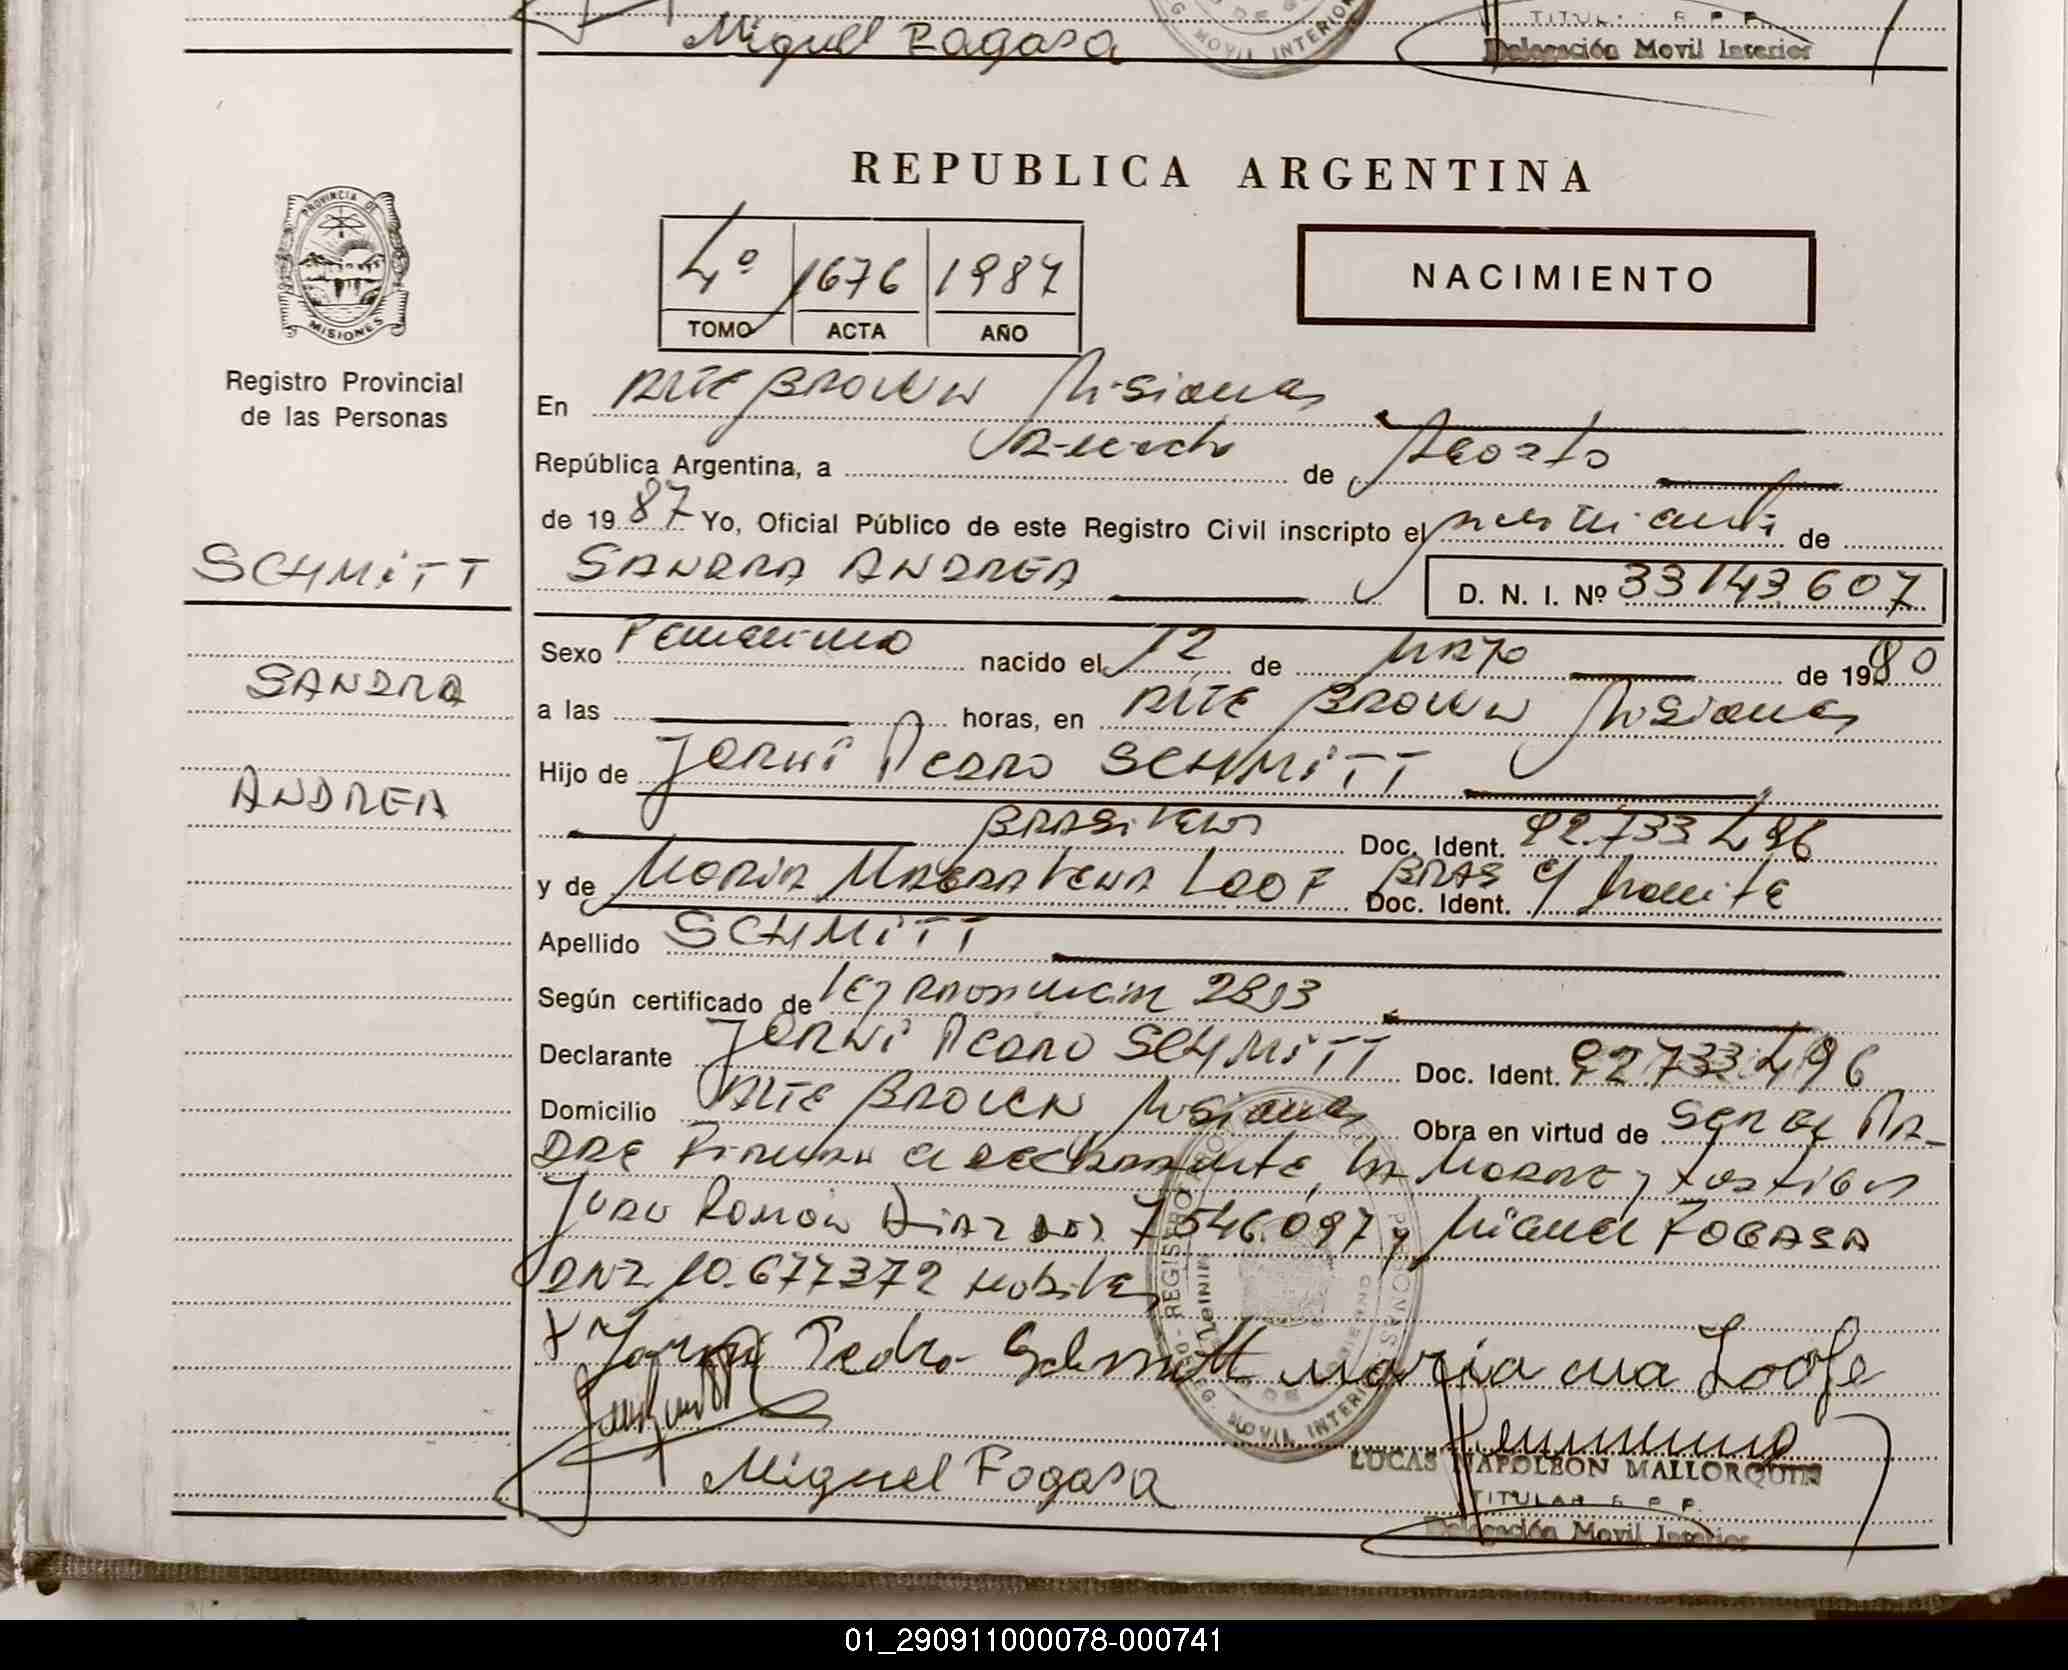 Miguel Fogasa
REG. MOVIL INTERIOR
TITULAR R. P. P.
Delegación Movil Interior
REPUBLICA ARGENTINA
4º 1676 1987
TOMO ACTA AÑO
NACIMIENTO
PROVINCIA DE
MISIONES
Registro Provincial
de las Personas
En ALTE BROWN Misiones
República Argentina, a de Agosto
de 1987 Yo, Oficial Público de este Registro Civil inscripto el nacimiento de
SCHMITT
SANDRA ANDREA D. N. I. Nº 33143607
Sexo Femenino nacido el 12 de Mayo de 1980
SANDRA
a las horas, en ALTE BROWN Misiones
Hijo de Jorni Pedro SCHMITT
ANDREA
Brasilero Doc. Ident. 92.733496
y de Maria Magdalena Loof BRAS Doc. Ident. c/ tramite
Apellido SCHMITT
Según certificado de Ley Provincial 2893
Declarante Jorni Pedro SCHMITT Doc. Ident. 92733496
Domicilio ALTE BROWN Misiones Obra en virtud de ser el PA-
DRE Firman el declarante, la Madre y testigos
Juan Ramón Diaz DNI 7546.097 y Miguel FOGASA
DNI 10.677372 habiles
X Jorni Pedro Schmitt maria ana Loofe
Miguel Fogasa
LUCAS NAPOLEON MALLORQUIN
TITULAR R. P. P.
Delegación Movil Interior
01_290911000078-000741